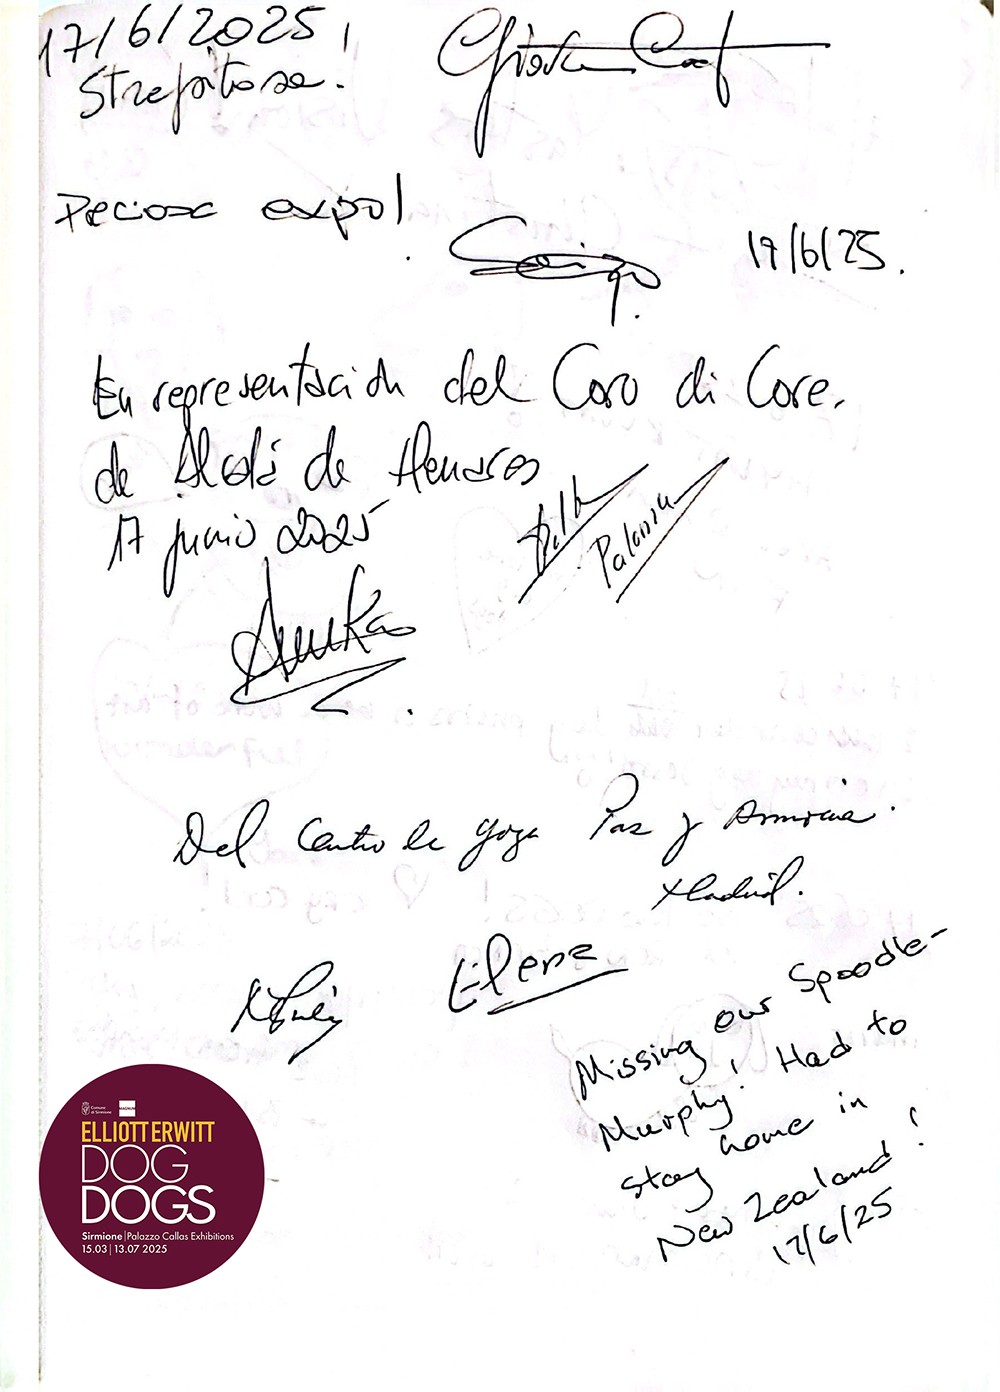 17/6/2025,
Strepitosa.
Peciosa expo!
17/6/25.
En representación del Coro di Core,
de Alcalá de Henares
17 junio 2025
Paloma
Del Centro de Yoga Paz y Armonia.
Madrid.
Elena
Missing our Spoodle-
Murphy! Had to
stay home in
New Zealand!
17/6/25
Comune
di Sirmione
MAGNUM
ELLIOTT ERWITT
DOG
DOGS
Sirmione | Palazzo Callas Exhibitions
15.03 | 13.07 2025